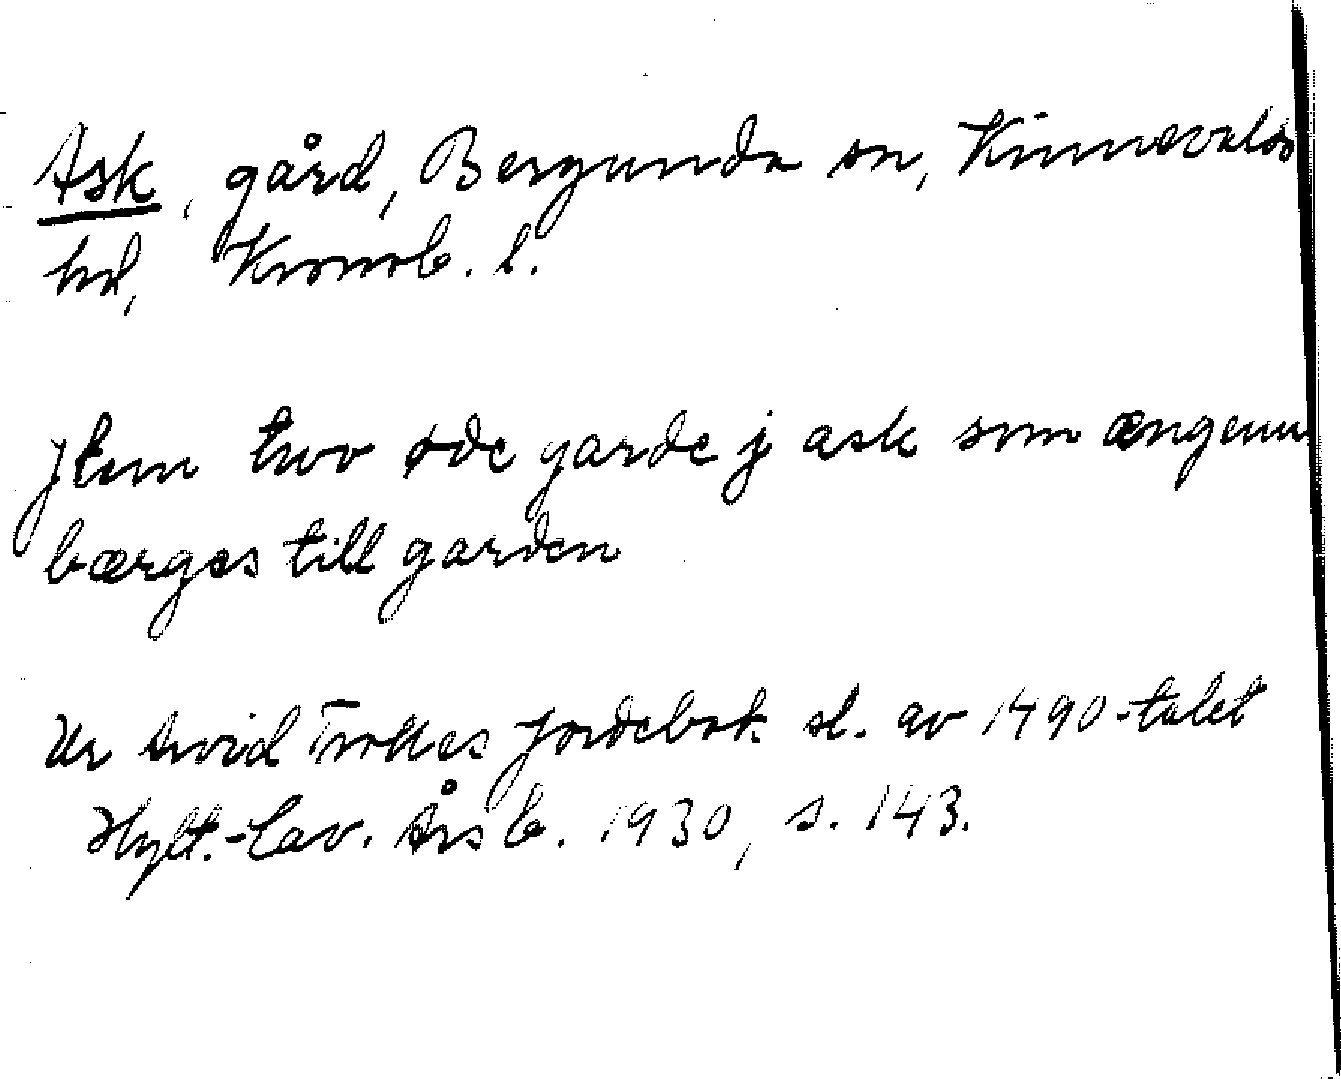 Ask, gård, Bergunda sn, Kinnevalds
hd, Kronob. l.
Jtem two øde garde j ask som ængenn
bærges till garden
Ur Arvid Trolles jordebok sl. av 1490-talet
Hylt.-Cav. Årsb. 1930, s. 143.